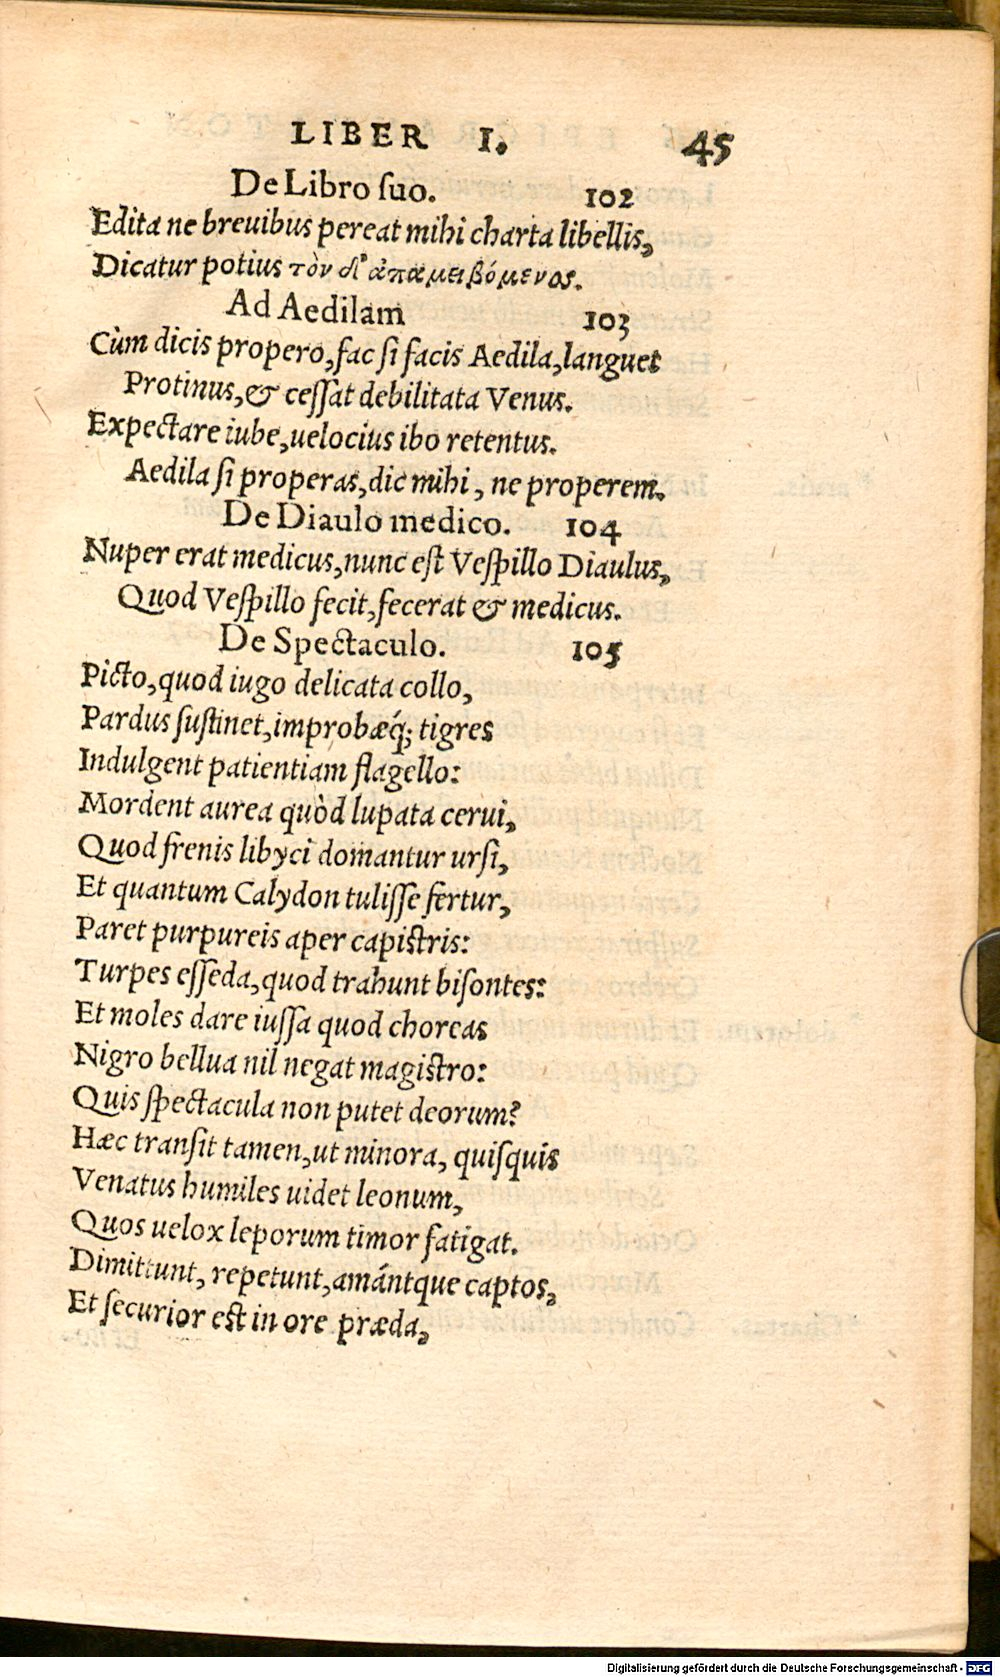 LIBER I. 45
De Libro suo. 102
Edita ne breuibus pereat mihi charta libellis,
Dicatur potius τὸν δ' ἀπαμειβόμενος.
Ad Aedilam 103
Cùm dicis propero, fac si facis Aedila, languet
Protinus, & cessat debilitata Venus.
Expectare iube, uelocius ibo retentus.
Aedila si properas, dic mihi, ne properem.
De Diaulo medico. 104
Nuper erat medicus, nunc est Vespillo Diaulus,
Quod Vespillo fecit, fecerat & medicus.
De Spectaculo. 105
Picto, quod iugo delicata collo,
Pardus sustinet, improbæq; tigres
Indulgent patientiam flagello:
Mordent aurea quòd lupata cerui,
Quod frenis libyci domantur ursi,
Et quantum Calydon tulisse fertur,
Paret purpureis aper capistris:
Turpes esseda, quod trahunt bisontes:
Et moles dare iussa quod choreas
Nigro bellua nil negat magistro:
Quis spectacula non putet deorum?
Hæc transit tamen, ut minora, quisquis
Venatus humiles uidet leonum,
Quos uelox leporum timor fatigat.
Dimittunt, repetunt, amántque captos,
Et securior est in ore præda,
Digitalisierung gefördert durch die Deutsche Forschungsgemeinschaft - DFG